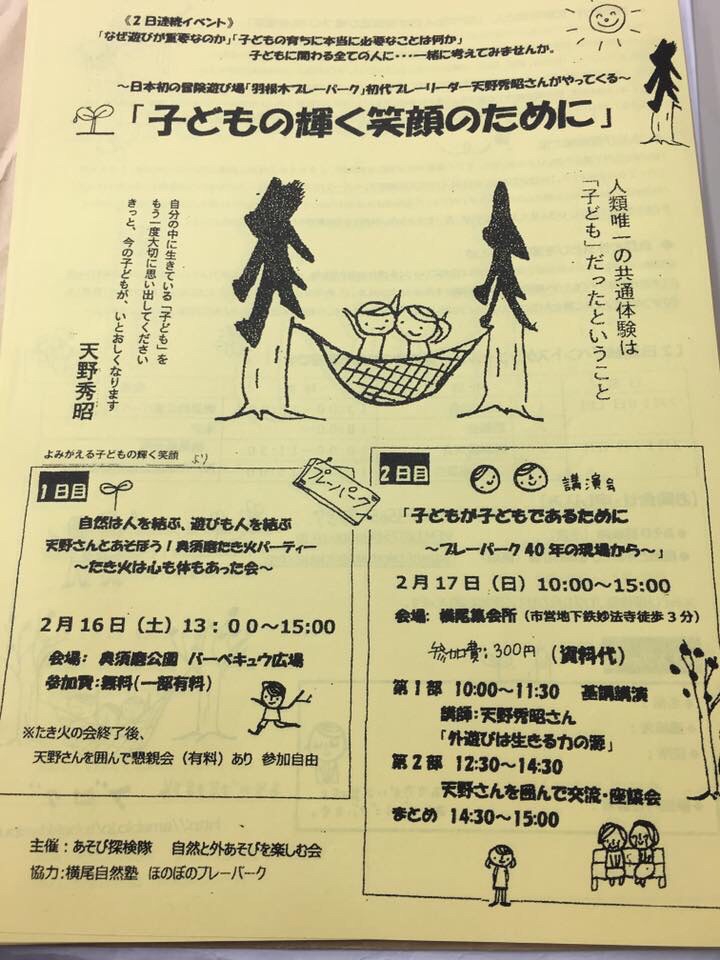 《２日連続イベント》
「なぜ遊びが重要なのか」「子どもの育ちに本当に必要なことは何か」
子どもに関わる全ての人に・・・一緒に考えてみませんか。
～日本初の冒険遊び場「羽根木プレーパーク」初代プレーリーダー天野秀昭さんがやってくる～
「子どもの輝く笑顔のために」
人類唯一の共通体験は
「子ども」だったということ
自分の中に生きている「子ども」を
もう一度大切に思い出してください
きっと、今の子どもが、いとおしくなります
天野秀昭
よみがえる子どもの輝く笑顔 より
プレーパーク
１日目
自然は人を結ぶ、遊びも人を結ぶ
天野さんとあそぼう！奥須磨たき火パーティー
～たき火は心も体もあった会～
２月１６日（土）１３：００～15:00
会場： 奥須磨公園 バーベキュウ広場
参加費：無料（一部有料）
※たき火の会終了後、
天野さんを囲んで懇親会（有料）あり 参加自由
２日目
講演会
「子どもが子どもであるために
～プレーパーク４０年の現場から～」
２月１７日（日）10:00～15:00
会場： 横尾集会所（市営地下鉄妙法寺徒歩３分）
参加費：300円（資料代）
第１部 10:00～11:30 基調講演
講師：天野秀昭さん
「外遊びは生きる力の源」
第２部 12:30～14:30
天野さんを囲んで交流・座談会
まとめ 14:30～15:00
主催：あそび探検隊 自然と外あそびを楽しむ会
協力：横尾自然塾 ほのぼのプレーパーク